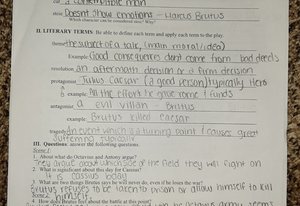 a contemptible man
stoic Doesnt show emotions - Marcus Brutus
Which character can be considered stoic? Why?
II. LITERARY TERMS: Be able to define each term and apply each term to the play.
theme the subject of a talk, (main moral/idea)
Example: Good consequences dont come from bad deeds
resolution an aftermath decision or a firm decision
protagonist Julius Caesar (a good person) typically hero
example: All the effort he gave rome & funds
antagonist a evil villan - Brutus
example: Brutus killed Caesar
tragedy an event which is a turning point / causes great
suffering typically
III. Questions: answer the following questions.
Scene 1:
1. About what do Octavius and Antony argue?
They argue about which side of the field they will fight on
2. What is significant about this day for Cassius?
It is cassius bday
3. What are two things Brutus says he will never do, even if he loses the war?
Brutus refuses to be taken to prison or allow himself to kill
himself
Scene 2:
1. How does Brutus feel about the battle at this point?
army seems